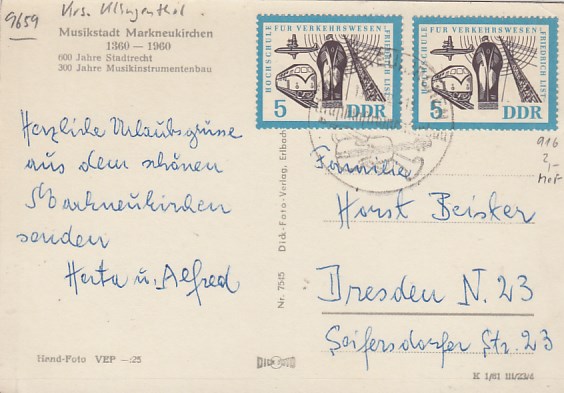 9659
Krs. Klingenthal.
Musikstadt Markneukirchen
1360 — 1960
600 Jahre Stadtrecht
300 Jahre Musikinstrumentenbau
HOCHSCHULE FÜR VERKEHRSWESEN „FRIEDRICH LIST"
5 DDR
HOCHSCHULE FÜR VERKEHRSWESEN „FRIEDRICH LIST"
5 DDR
916
2,-
Herzliche Urlaubsgrüsse
aus dem schönen
Markneukirchen
senden
Herta u. Alfred
Nr. 7515 Dick-Foto-Verlag, Erlbach
Familie
Horst Beisker
Dresden N. 23
Seifersdorfer Str. 23
Hend-Foto VEP —:25
DICK FOTO
K 1/61 III/23/6